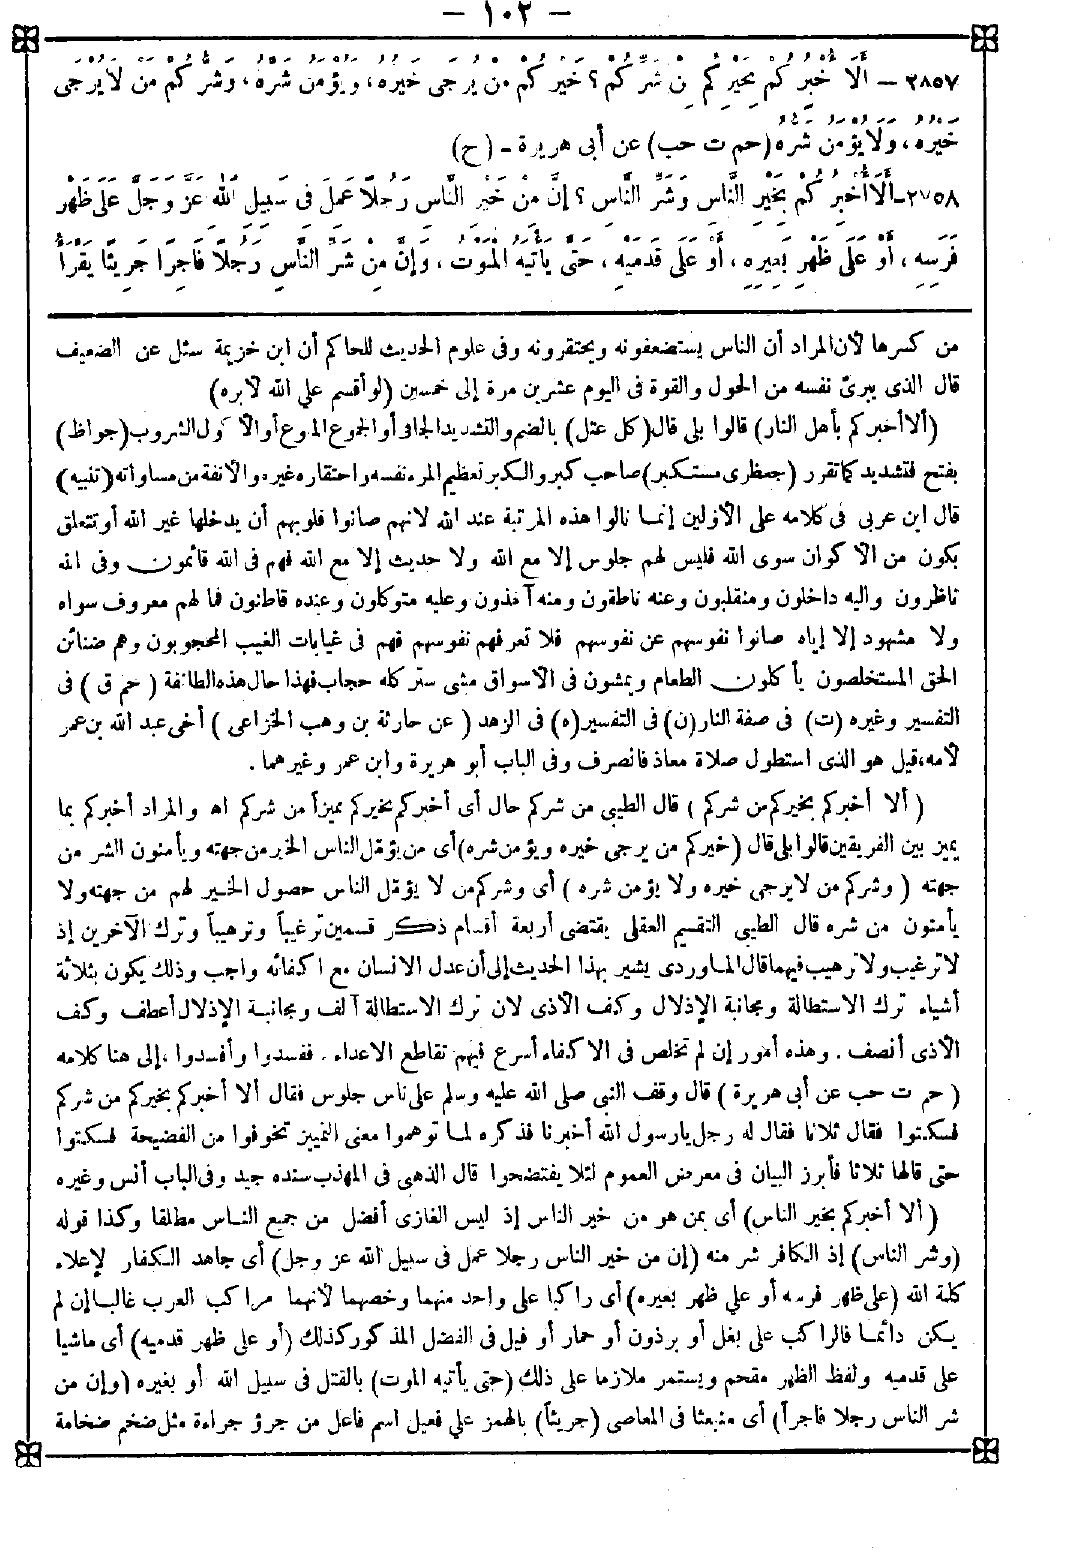 — ١٠٢ —
٢٨٥٧ — أَلَا أُخْبِرُكُمْ بِخَيْرِكُمْ مِنْ شَرِّكُمْ؟ خَيْرُكُمْ مَنْ يُرْجَى خَيْرُهُ، وَيُؤْمَنُ شَرُّهُ، وَشَرُّكُمْ مَنْ لَا يُرْجَى
خَيْرُهُ، وَلَا يُؤْمَنُ شَرُّهُ (حم ت حب) عن أبى هريرة - (ح)
٢٨٥٨ - أَلَا أُخْبِرُكُمْ بِخَيْرِ النَّاسِ وَشَرِّ النَّاسِ؟ إِنَّ مِنْ خَيْرِ النَّاسِ رَجُلًا عَمِلَ فِى سَبِيلِ اللهِ عَزَّ وَجَلَّ عَلَى ظَهْرِ
فَرَسِهِ، أَوْ عَلَى ظَهْرِ بَعِيرِهِ، أَوْ عَلَى قَدَمَيْهِ، حَتَّى يَأْتِيَهُ الْمَوْتُ، وَإِنَّ مِنْ شَرِّ النَّاسِ رَجُلًا فَاجِرًا جَرِيئًا يَقْرَأُ
من كسرها لأن المراد أن الناس يستضعفونه ويحتقرونه وفى علوم الحديث للحاكم أن ابن خزيمة سئل عن الضعيف
قال الذى يبرئ نفسه من الحول والقوة فى اليوم عشرين مرة إلى خمسين (لو أقسم على الله لأبره)
(ألا أخبركم بأهل النار) قالوا بلى قال (كل عتل) بالضم والتشديد الجافى أو الجموع المنوع أو الأكول الشروب (جواظ)
بفتح فتشديد كما تقرر (جعظرى مستكبر) صاحب كبر والكبر تعظيم المرء نفسه واحتقاره غيره والأنفة من مساواته (تنبيه)
قال ابن عربى فى كلامه على الأولين إنما نالوا هذه المرتبة عند الله لانهم صانوا قلوبهم أن يدخلها غير الله أو تتعلق
بكون من الأكوان سوى الله فليس لهم جلوس إلا مع الله ولا حديث إلا مع الله فهم فى الله قائمون وفى الله
ناظرون واليه داخلون ومنقلبون وعنه ناطقون ومنه آخذون وعليه متوكلون وعنده قاطنون فما لهم معروف سواه
ولا مشهود إلا إياه صانوا نفوسهم عن نفوسهم فلا تعرفهم نفوسهم فهم فى غيابات الغيب المحجوبون وهم ضنائن
الحق المستخلصون يأكلون الطعام ويمشون فى الأسواق مشى ستر كله حجاب فهذا حال هذه الطائفة (حم ق) فى
التفسير وغيره (ت) فى صفة النار (ن) فى التفسير (ه) فى الزهد (عن حارثة بن وهب الخزاعى) أخى عبد الله بن عمر
لأمه، قيل هو الذى استطول صلاة معاذ فانصرف وفى الباب أبو هريرة وابن عمر وغيرهما.
(ألا أخبركم بخيركم من شركم) قال الطيبى من شركم حال أى أخبركم بخيركم مميزاً من شركم اه والمراد أخبركم بما
يميز بين الفريقين قالوا بلى قال (خيركم من يرجى خيره ويؤمن شره) أى من يؤمّل الناس الخير من جهته ويأمنون الشر من
جهته (وشركم من لا يرجى خيره ولا يؤمن شره) أى وشركم من لا يؤمّل الناس حصول الخير لهم من جهته ولا
يأمنون من شره قال الطيبى التقسيم العقلى يقتضى أربعة أقسام ذكر قسمين ترغيباً وترهيباً وترك الآخرين إذ
لا ترغيب ولا ترهيب فيهما قال الماوردى يشير بهذا الحديث إلى أن عدل الانسان مع اكفائه واجب وذلك يكون بثلاثة
أشياء ترك الاستطالة ومجانبة الإذلال وكف الأذى لان ترك الاستطالة آلف ومجانبة الإذلال أعطف وكف
الأذى أنصف. وهذه أمور إن لم تخلص فى الاكفاء أسرع فيهم تقاطع الاعداء. ففسدوا وأفسدوا، إلى هنا كلامه
(حم ت حب عن أبى هريرة) قال وقف النبى صلى الله عليه وسلم على ناس جلوس فقال ألا أخبركم بخيركم من شركم
فسكتوا فقال ثلاثا فقال له رجل يارسول الله أخبرنا فذكره لما توهموا معنى التمييز تخوفوا من الفضيحة فسكتوا
حتى قالها ثلاثا فأبرز البيان فى معرض العموم لئلا يفتضحوا قال الذهبى فى المهذب سنده جيد وفى الباب أنس وغيره
(ألا أخبركم بخير الناس) أى بمن هو من خير الناس إذ ليس الغازى أفضل من جميع الناس مطلقا وكذا قوله
(وشر الناس) إذ الكافر شر منه (إن من خير الناس رجلا عمل فى سبيل الله عز وجل) أى جاهد الكفار لإعلاء
كلمة الله (على ظهر فرسه أو على ظهر بعيره) أى راكبا على واحد منهما وخصهما لأنهما مراكب العرب غالبا إن لم
يكن دائما فالراكب على بغل أو برذون أو حمار أو فيل فى الفضل المذكور كذلك (أو على ظهر قدميه) أى ماشيا
على قدميه ولفظ الظهر مقحم ويستمر ملازما على ذلك (حتى يأتيه الموت) بالقتل فى سبيل الله أو بغيره (وإن من
شر الناس رجلا فاجراً) أى منبعثا فى المعاصى (جريئاً) بالهمز على فعيل اسم فاعل من جرؤ جراءة مثل ضخم ضخامة